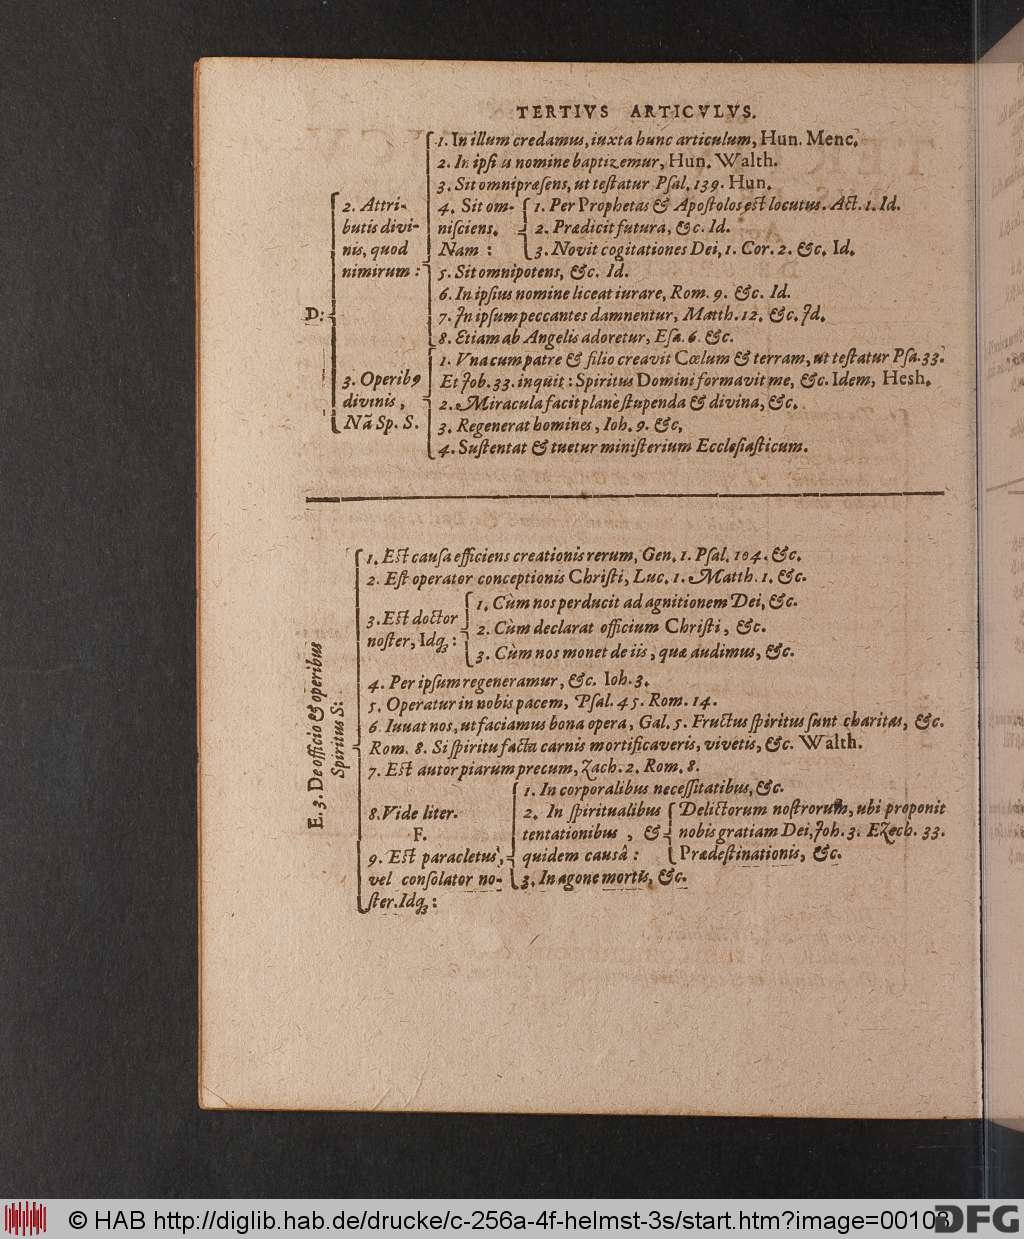 TERTIVS ARTICVLVS.
D:
2. Attri-
butis divi-
nis, quod
nimirum:
1. In illum credamus, iuxta hunc articulum, Hun. Menc.
2. In ipsius nomine baptizemur, Hun. Walth.
3. Sit omnipræsens, ut testatur Psal. 139. Hun.
4. Sit om-
nisciens.
Nam:
1. Per Prophetas & Apostolos est locutus. Act. 1. Id.
2. Prædicit futura, &c. Id.
3. Novit cogitationes Dei, 1. Cor. 2. &c. Id.
5. Sit omnipotens, &c. Id.
6. In ipsius nomine liceat iurare, Rom. 9. &c. Id.
7. In ipsum peccantes damnentur, Matth. 12. &c. Id.
8. Etiam ab Angelis adoretur, Esa. 6. &c.
3. Operibꝰ
divinis,
Nã Sp. S.
1. Vna cum patre & filio creavit Cœlum & terram, ut testatur Psa. 33.
Et Job. 33. inquit: Spiritus Domini formavit me, &c. Idem, Hesh.
2. Miracula facit plane stupenda & divina, &c.
3. Regenerat homines, Ioh. 9. &c.
4. Sustentat & tuetur ministerium Ecclesiasticum.
E. 3. De officio & operibus
Spiritus S:
1. Est causa efficiens creationis rerum, Gen. 1. Psal. 104. &c.
2. Est operator conceptionis Christi, Luc. 1. Matth. 1. &c.
3. Est doctor
noster, Idqꝫ:
1. Cùm nos perducit ad agnitionem Dei, &c.
2. Cùm declarat officium Christi, &c.
3. Cùm nos monet de iis, quæ audimus, &c.
4. Per ipsum regeneramur, &c. Ioh. 3.
5. Operatur in nobis pacem, Psal. 45. Rom. 14.
6. Iuvat nos, ut faciamus bona opera, Gal. 5. Fructus spiritus sunt charitas, &c.
Rom. 8. Si spiritu facta carnis mortificaveris, vivetis, &c. Walth.
7. Est autor piarum precum, Zach. 2. Rom. 8.
8. Vide liter.
F.
9. Est paracletus,
vel consolator no-
ster. Idqꝫ:
1. In corporalibus necessitatibus, &c.
2. In spiritualibus
tentationibus, &
quidem causâ:
Delictorum nostrorum, ubi proponit
nobis gratiam Dei, Joh. 3. Ezech. 33.
Prædestinationis, &c.
3. In agone mortis, &c.
© HAB http://diglib.hab.de/drucke/c-256a-4f-helmst-3s/start.htm?image=00108
DFG